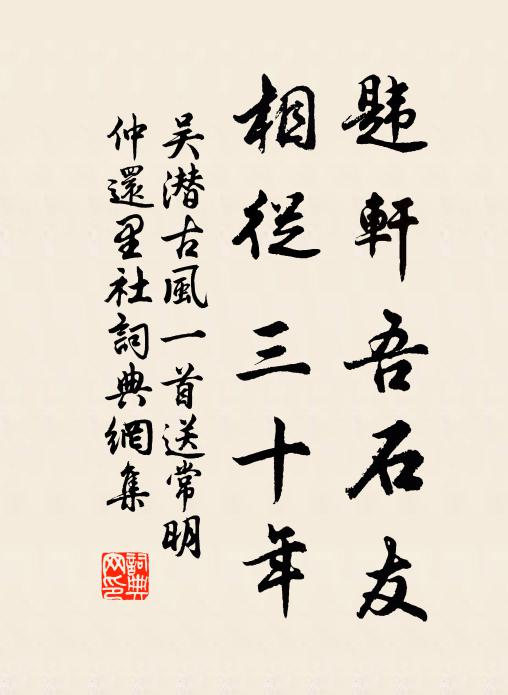 韙軒吾石友
相從三十年
吴潜古風一首送常明
仲還里社詞典網集
詞典
网印